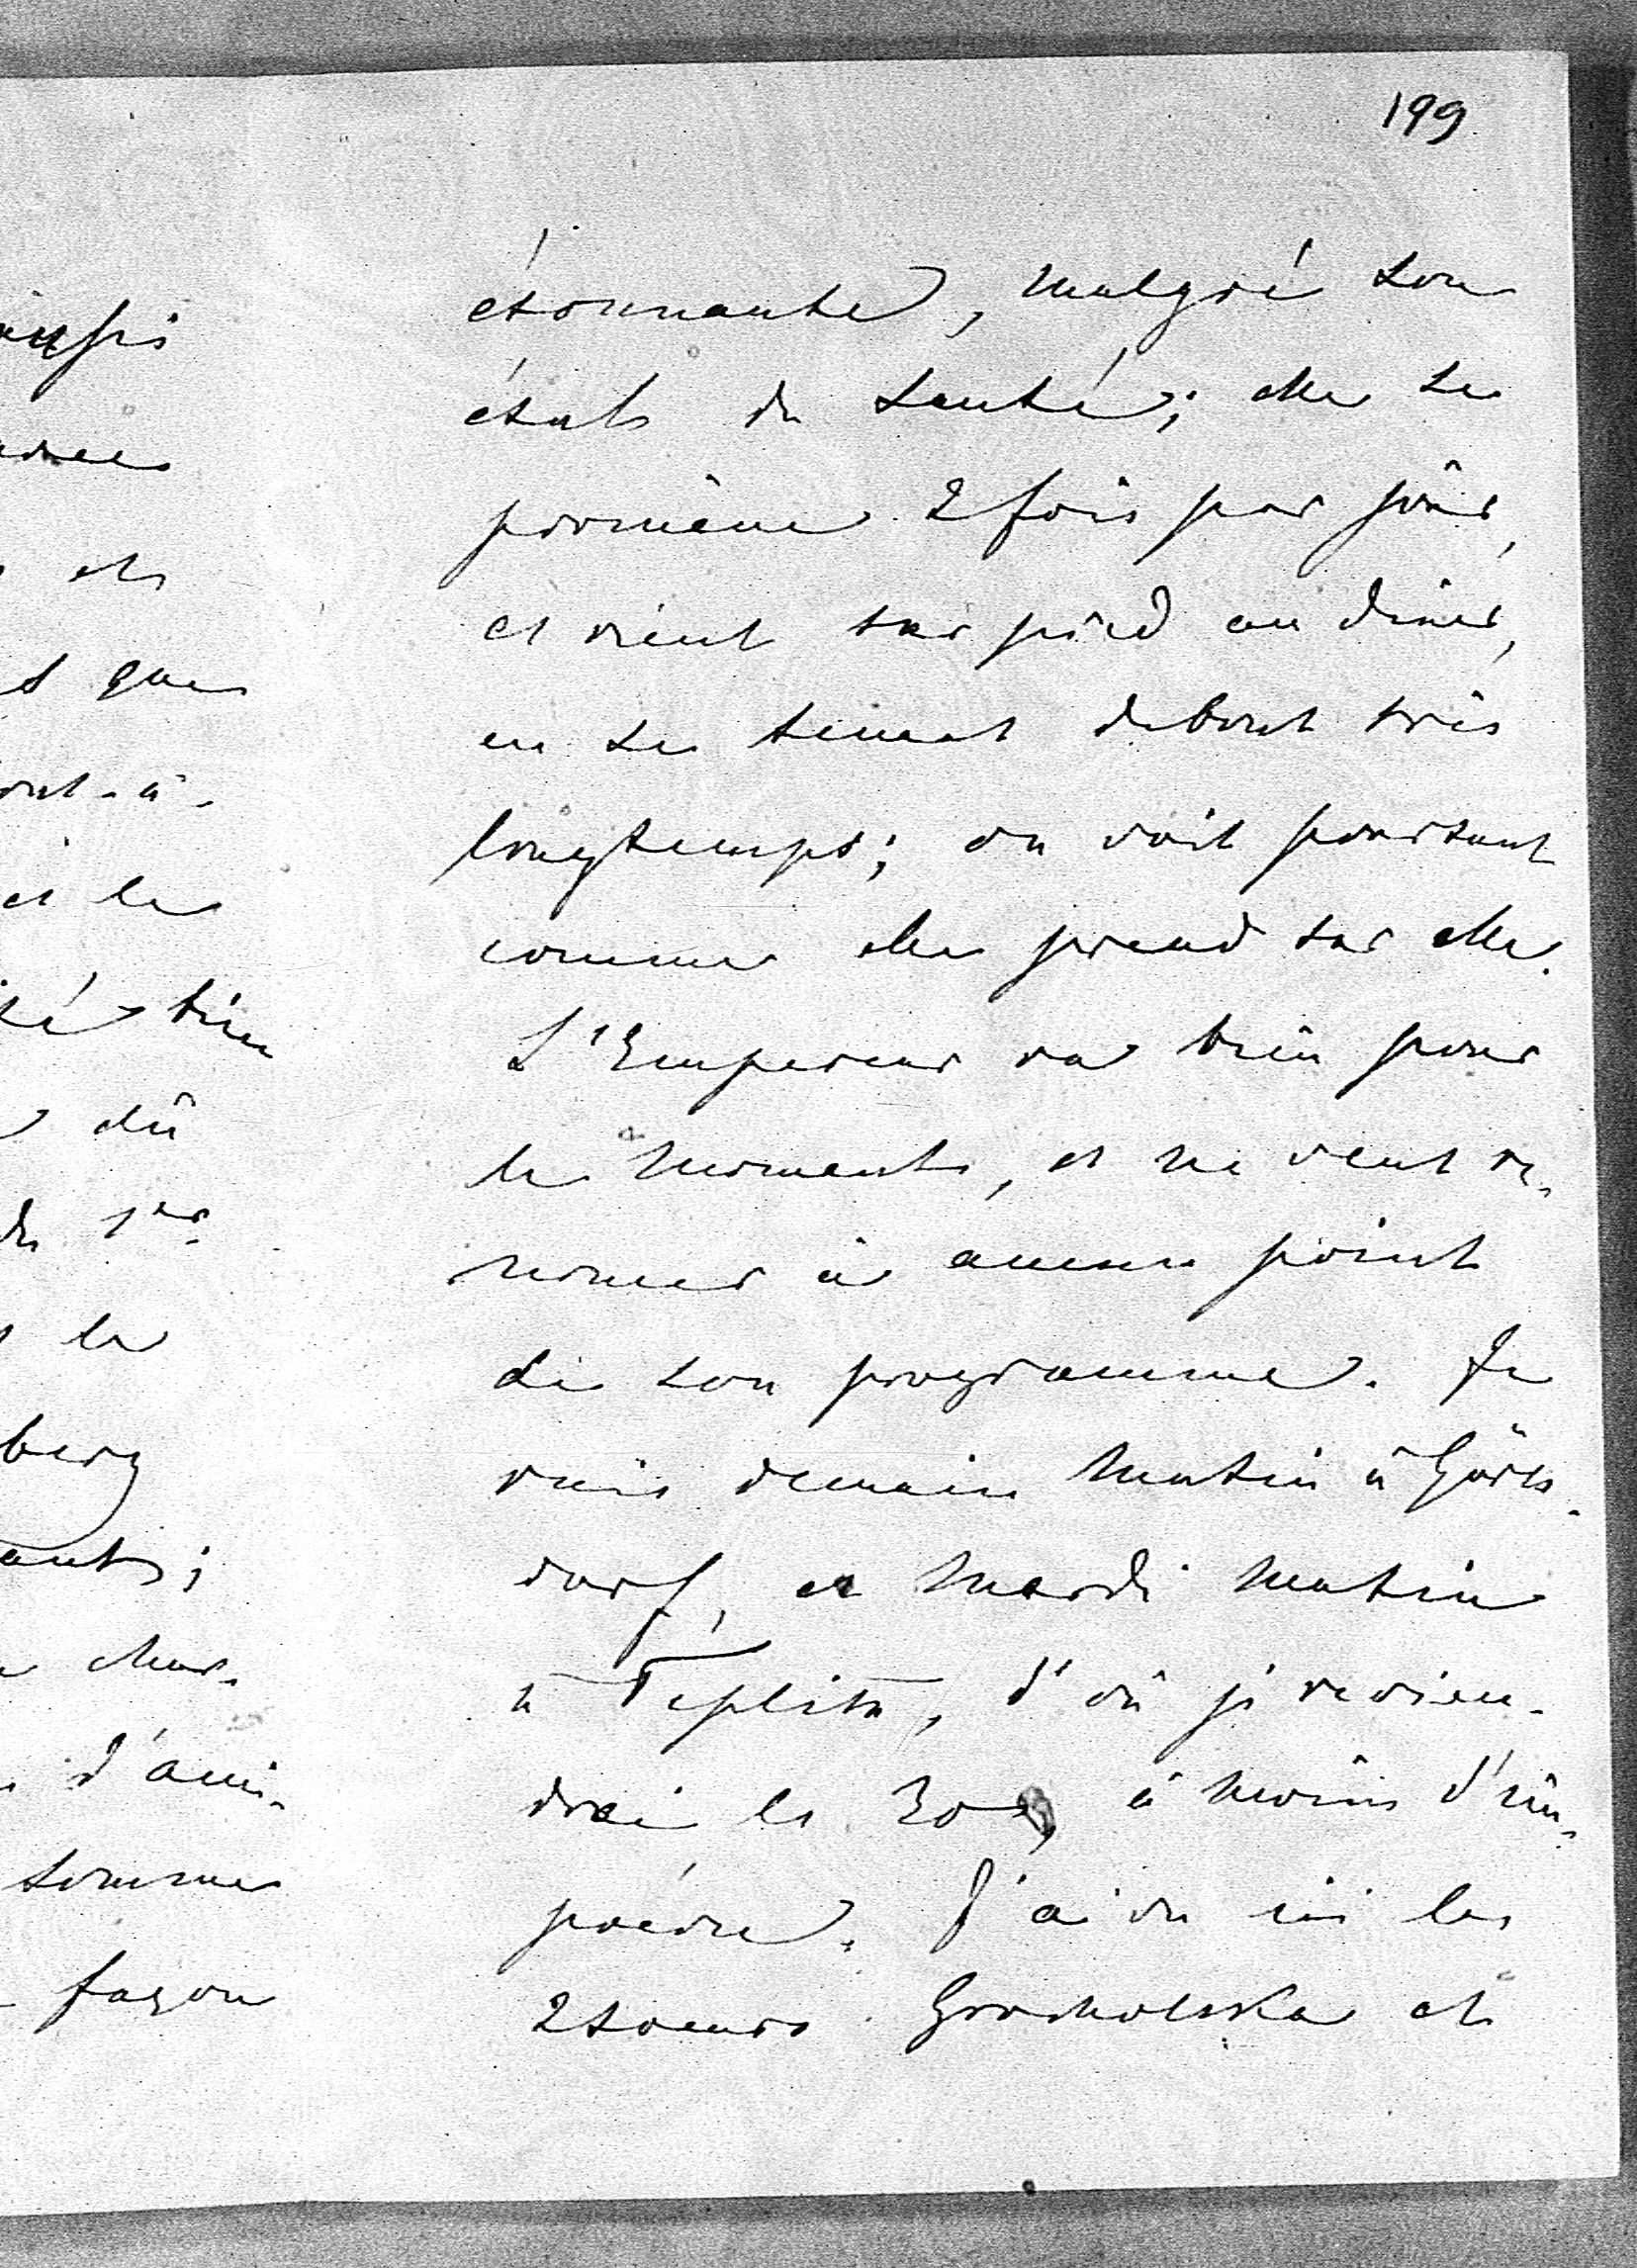 199
étonnante, malgré son
état de santé; elle se
promène 2 fois par jour,
et vient sur pied au diner,
en se tenant debout très
longtemps; on voit pourtant
comme elle prend sur elle.
L'Empereur va bien pour
le moment, et ne veut re-
noncer à aucun point
de son programme. Je
vais demain matin à Görls-
dorf, et mardi matin
à Teplitz, d'où je revien-
drai le 30, à moins d'im-
prévu. J'ai vu ici les
2 soeurs Grocholska et
aussi
et
que
-à-
et le
bien
dû
de 1er
la
berg
ants;
char-
d'ami-
somme
façon